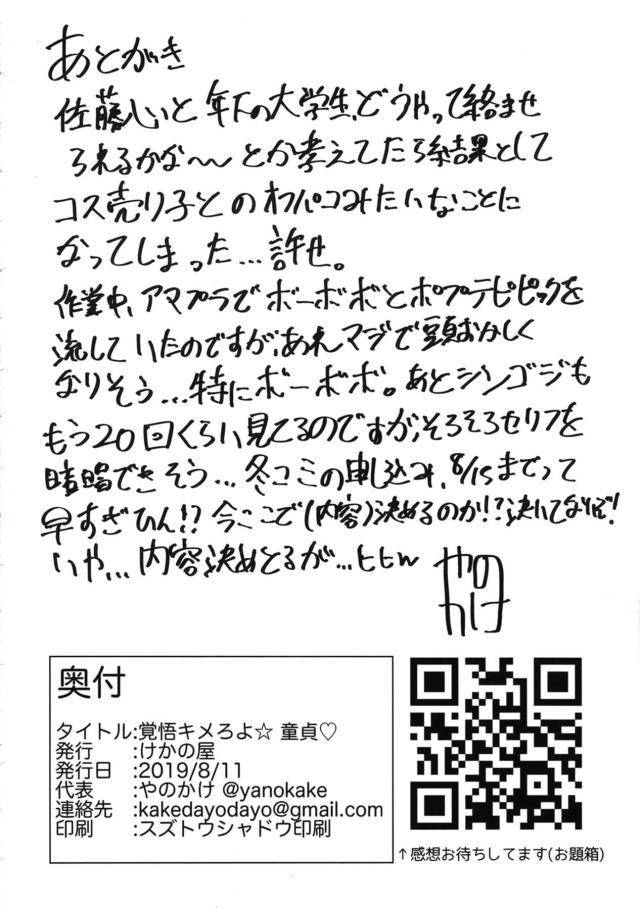 あとがき
佐藤心と年下の大学生、どうやって絡ませ
られるかな〜〜とか考えてたら結果として
コス売り子とのオフパコみたいなことに
なってしまった…許せ。
作業中、アマプラでボーボボとポプテピピックを
流していたのですが、あれマジで頭おかしく
なりそう…特にボーボボ。あとシンゴジも
もう20回くらい見てるのですが、そろそろセリフを
暗唱できそう…冬コミの申し込み、8/15までって
早すぎひん!?今ここで(内容)決めるのか!?決めてないぞ!
いや…内容決めとるが…ヒヒw
やの
かけ
奥付
タイトル:覚悟キメろよ☆ 童貞♡
発行 :けかの屋
発行日 :2019/8/11
代表 :やのかけ @yanokake
連絡先 :kakedayodayo@gmail.com
印刷 :スズトウシャドウ印刷
↑感想お待ちしてます(お題箱)